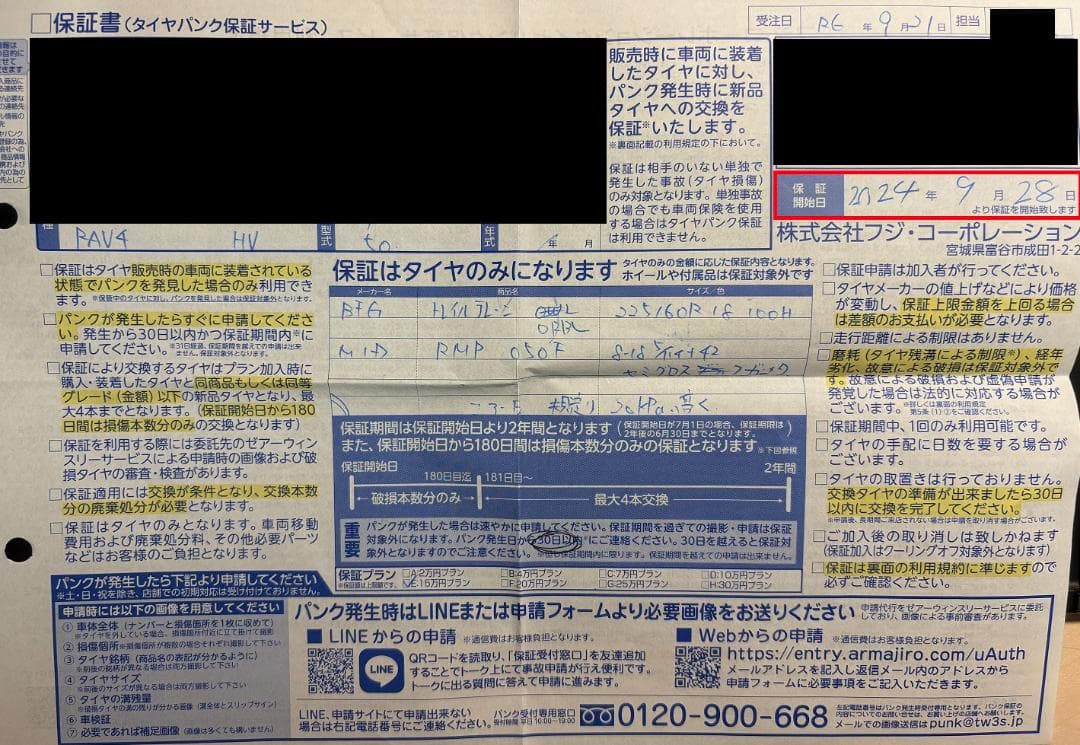 □保証書(タイヤパンク保証サービス)
受注日 R6 年 9 月 21 日 担当
販売時に車両に装着
したタイヤに対し、
パンク発生時に新品
タイヤへの交換を
保証※いたします。
※裏面記載の利用規定の下において。
保証は相手のいない単独で
発生した事故(タイヤ損傷)
のみ対象となります。単独事故
の場合でも車両保険を使用
する場合はタイヤパンク保証
は利用できません。
保証開始日 2024 年 9 月 28 日
より保証を開始致します
株式会社フジ・コーポレーション
宮城県富谷市成田1-2-2
種 RAV4 HV 型式 50 年式 年 月
□保証はタイヤ販売時の車両に装着されている
状態でパンクを発見した場合のみ利用でき
ます。※保証中のタイヤに対し、パンクを発見した場合は保証対象外となります。
□パンクが発生したらすぐに申請してくださ
い。発生から30日以内かつ保証期間内※に
申請してください。※31日経過、保証期間を越えての申請は出来ません。保証対象外となります。
□保証により交換するタイヤはプラン加入時に
購入・装着したタイヤと同商品もしくは同等
グレード(金額)以下の新品タイヤとなり、最
大4本までとなります。(保証開始日から180
日間は損傷本数分のみの交換となります)
□保証を利用する際には委託先のぜアーウィン
スリーサービスによる申請時の画像および破
損タイヤの審査・検査があります。
□保証適用には交換が条件となり、交換本数
分の廃棄処分が必要となります。
□保証はタイヤのみとなります。車両移動
費用および廃棄処分料、その他必要パーツ
などはお客様のご負担となります。
保証はタイヤのみになります タイヤのみの金額に応じた保証内容となります。
ホイールや付属品は保証対象外です
メーカー名 商品名 サイズ/色
BFG トレイルテレーン ORBL 225/60R18 100H
MID RMP 050F
20kPa 高く
保証期間は保証開始日より2年間となります(保証開始日が7月1日の場合、保証期限は2年後の6月30日までとなります。)
また、保証開始日から180日間は損傷本数分のみの保証となります ※下図参照
保証開始日 180日目迄 181日目~ 2年間
破損本数分のみ 最大4本交換
重要 パンクが発生した場合は速やかに申請してください。保証期間を過ぎての撮影・申請は保証
対象外になります。パンク発生日から30日以内にご連絡ください。30日を越えると保証対
象外となりますのでご注意ください。※保証期間内に限ります。保証期間を越えての申請は出来ません。
保証プラン □A:2万円プラン □B:4万円プラン □C:7万円プラン □D:10万円プラン
☑E:15万円プラン □F:20万円プラン □G:25万円プラン □H:30万円プラン
□保証申請は加入者が行ってください。
□タイヤメーカーの値上げなどにより価格
が変動し、保証上限金額を上回る場合
は差額のお支払いが必要となります。
□走行距離による制限はありません。
□磨耗(タイヤ残溝による制限※)、経年
劣化、故意による破損は保証対象外で
す。故意による破損および虚偽申請が
発覚した場合は法的に対応する場合が
ございます。※詳しくは裏面の利用規定 第5条(1)②をご確認ください。
□保証期間中、1回のみ利用可能です。
□タイヤの手配に日数を要する場合が
ございます。
□タイヤの取置きは行っておりません。
交換タイヤの準備が出来ましたら30日
以内に交換を完了してください。
※申請後、長期間ご来店されない場合は申請を取り消す場合がございます。
□ご加入後の取り消しは致しかねます
(保証加入はクーリングオフ対象外となります)
□保証は裏面の利用規約に準じますので
必ずご確認ください。
パンクが発生したら下記より申請してください
※土・日・祝を除き、店頭での初期対応は受け付けておりません。
申請時には以下の画像を用意してください
① 車体全体(ナンバーと損傷箇所を1枚に収めて)
※タイヤを外している場合、損傷箇所付近に立て掛けて撮影
② 損傷個所 ※損傷個所が複数の場合それぞれ撮影して下さい
③ タイヤ銘柄(商品名の表記が分かるように)
※前後の銘柄が異なる場合は両方撮影して下さい
④ タイヤサイズ
※前後のサイズが異なる場合は両方撮影して下さい
⑤ タイヤの溝残量
※破損タイヤの溝の残りが分かる画像(溝全体とスリップサイン)
⑥ 車検証
⑦ 必要であれば補足画像(画像は多くても構いません)
パンク発生時はLINEまたは申請フォームより必要画像をお送りください
申請代行をぜアーウィンスリーサービスに委託
しており、画像による事前審査があります。
■ LINEからの申請 ※通信費はお客様負担となります。
LINE
QRコードを読取り、「保証受付窓口」を友達追加
することでトーク上にて事故申請が行え便利です。
トークに出る質問に答えて申請に進みます。
■ Webからの申請 ※通信費はお客様負担となります。
https://entry.armajiro.com/uAuth
メールアドレスを記入し返信メール内のアドレスから
申請フォームに必要事項をご記入いただきます。
LINE、申請サイトにて申請出来ない
場合は右記電話番号にご連絡ください。
パンク受付専用窓口
受付時間 平日 10:00~19:00
0120-900-668
左記電話番号はパンク発生時受付専用となります。パンク保証の
内容についてのお問い合せは、お買い上げの店舗へお願いします。
メールでの画像送信はpunk@tw3s.jp